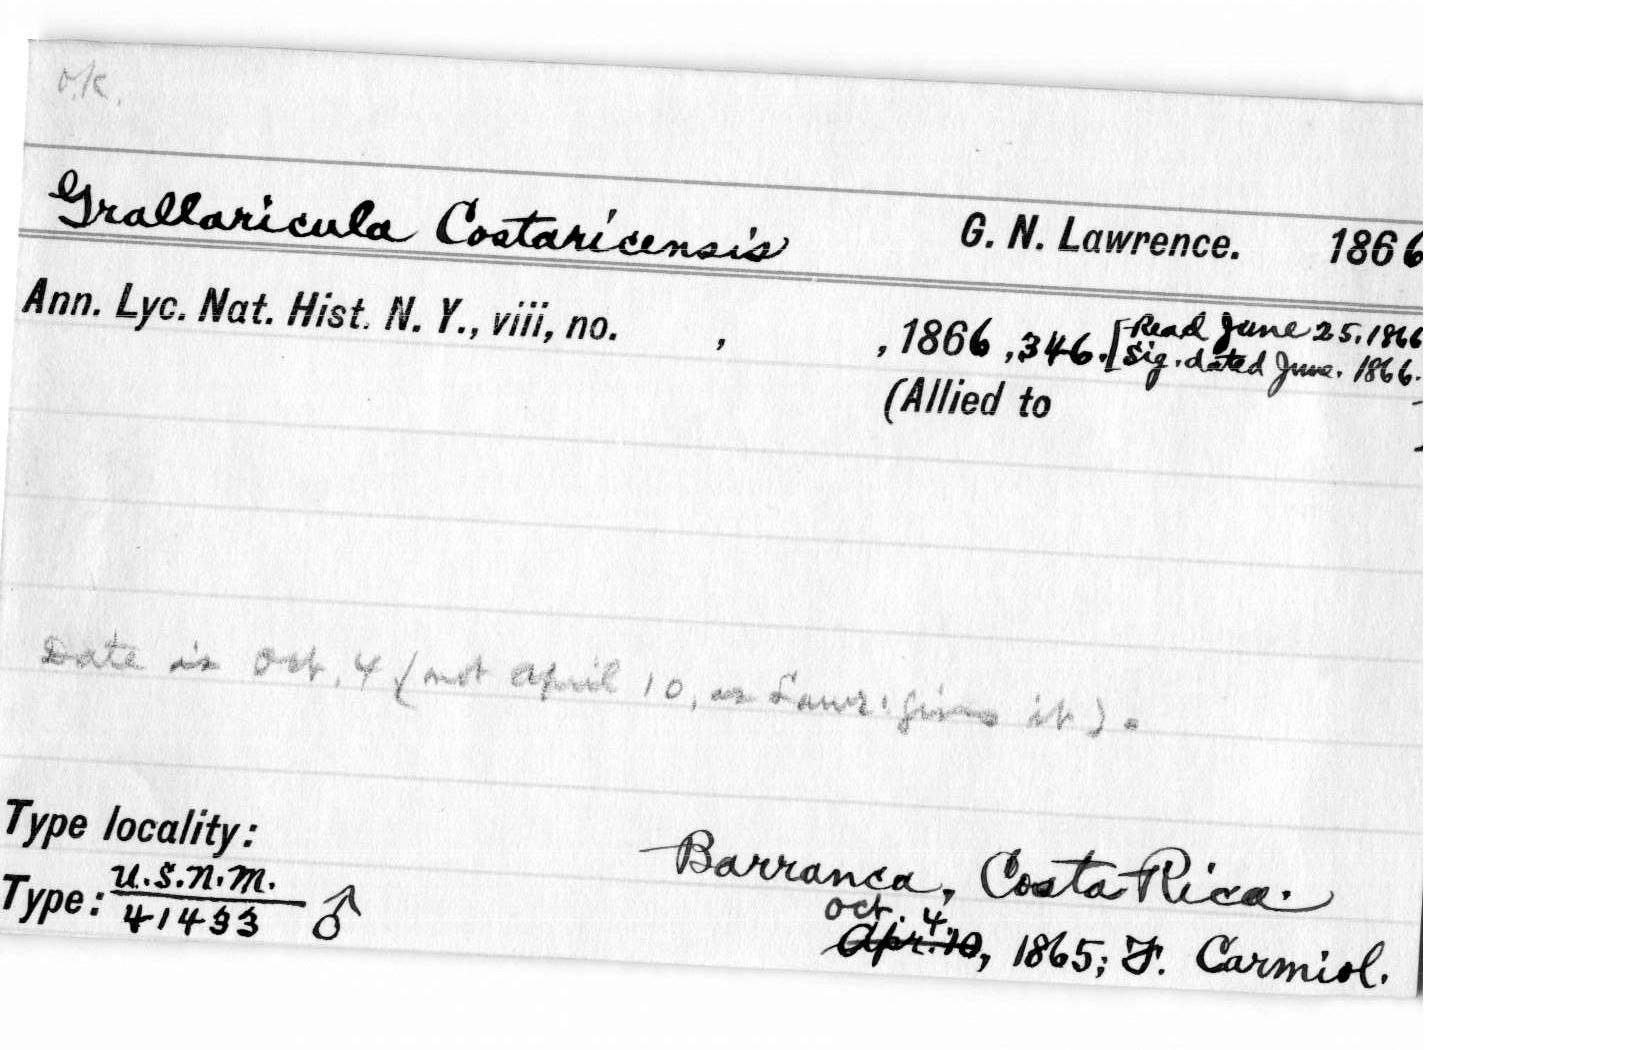 O.K.
Grallaricula Costaricensis G. N. Lawrence. 1866
Ann. Lyc. Nat. Hist. N. Y., viii, no. , , 1866, 346. [Read June 25, 1866
Sig. dated June. 1866.
(Allied to
Date is Oct. 4 (not April 10, as Lawr. gives it).
Type locality:
Barranca, Costa Rica.
Type: U.S.N.M. 41433 ♂
Oct. 4.
Apr. 10, 1865; F. Carmiol.